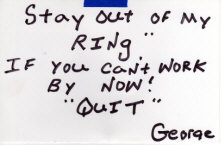 Stay out of my
RING"
IF you can't WORK
BY NOW!
"QUIT"
George